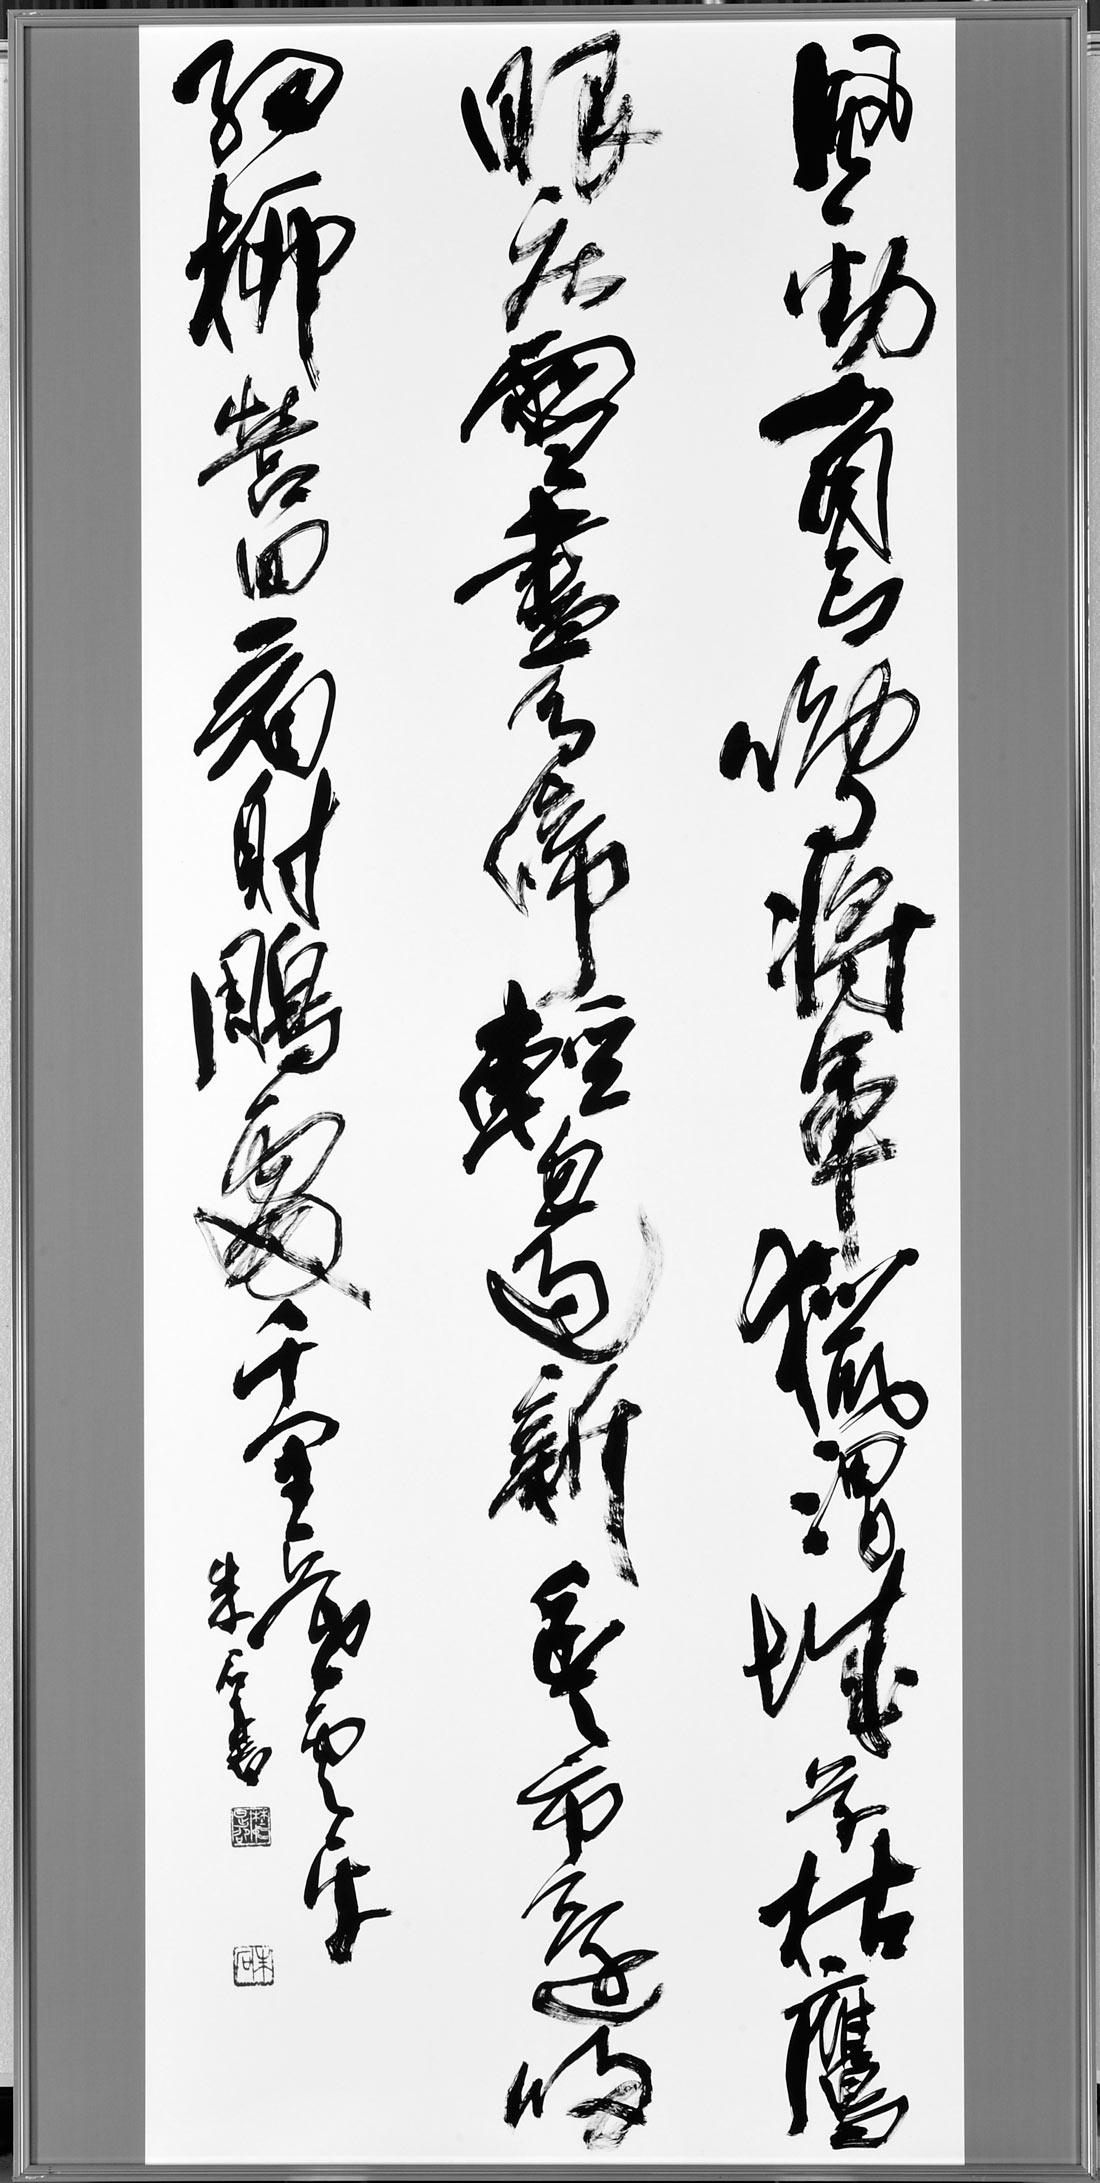 風勁角弓鳴將軍獵渭城草枯鷹
眼疾雪盡馬蹄輕忽過新豐市還歸
細柳營回看射鵰處千里暮雲平
朱石書
朱石